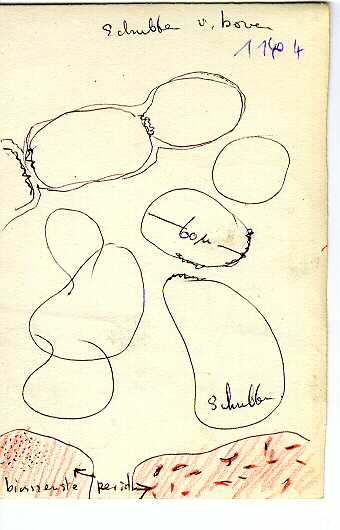 Schubben v. boven
1140 4
60 µ
Schubben
binnenste / peridie